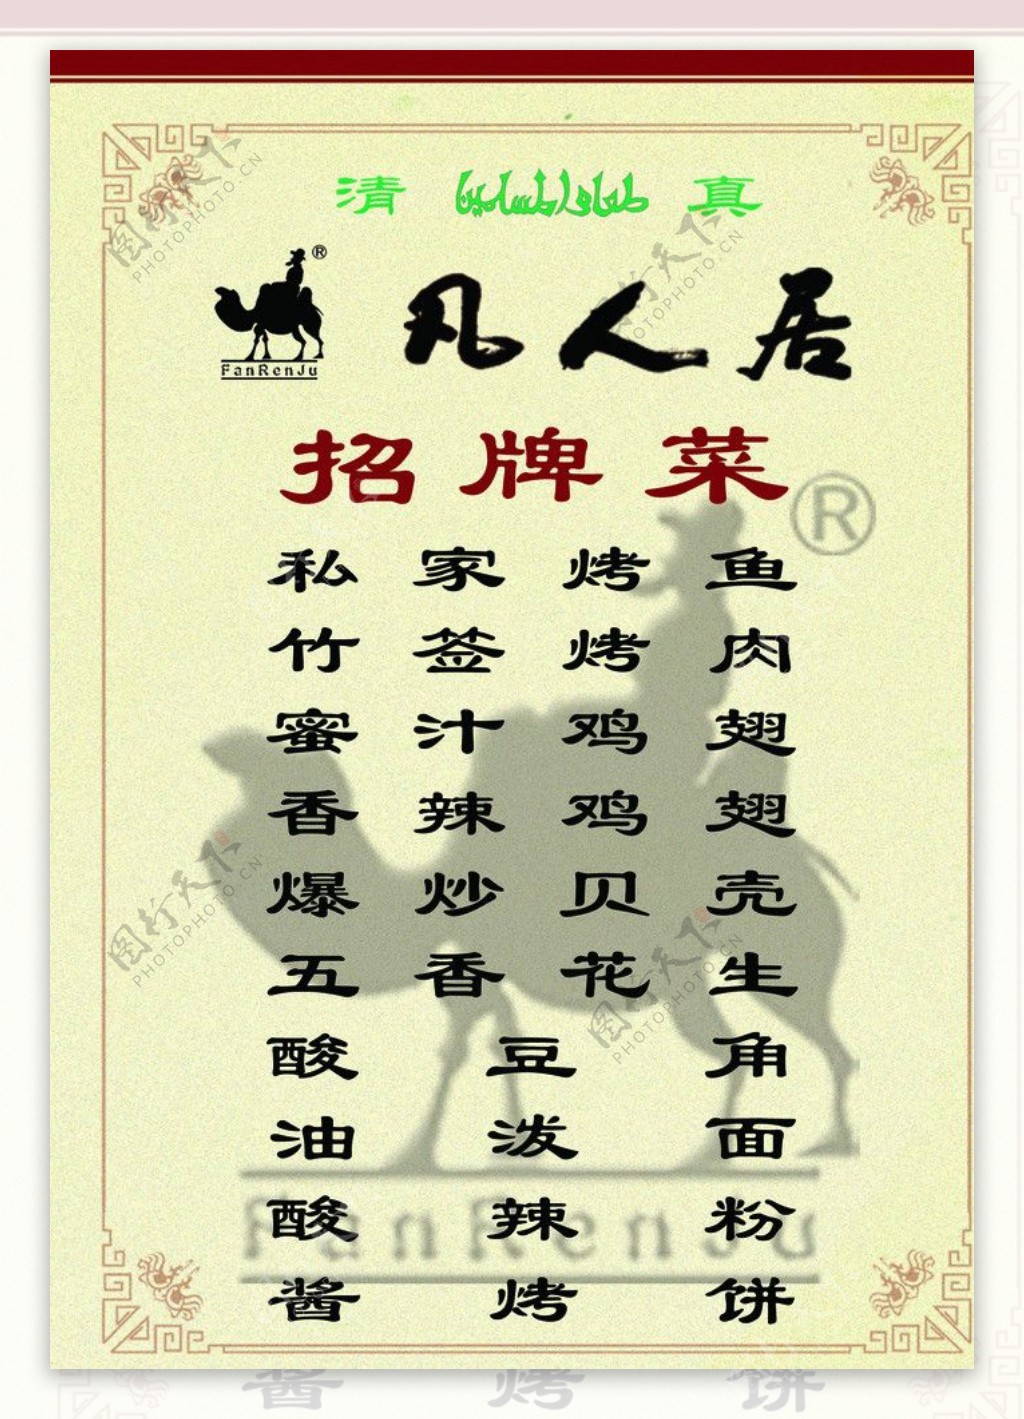 清 طعام المسلمين 真
®
凡人居
FanRenJu
招牌菜
®
私家烤鱼
竹签烤肉
蜜汁鸡翅
香辣鸡翅
爆炒贝壳
五香花生
酸豆角
油泼面
酸辣粉
酱烤饼
FanRenJu
酱烤饼
图行天下
PHOTOPHOTO.CN
图行天下
PHOTOPHOTO.CN
图行天下
PHOTOPHOTO.CN
图行天下
PHOTOPHOTO.CN